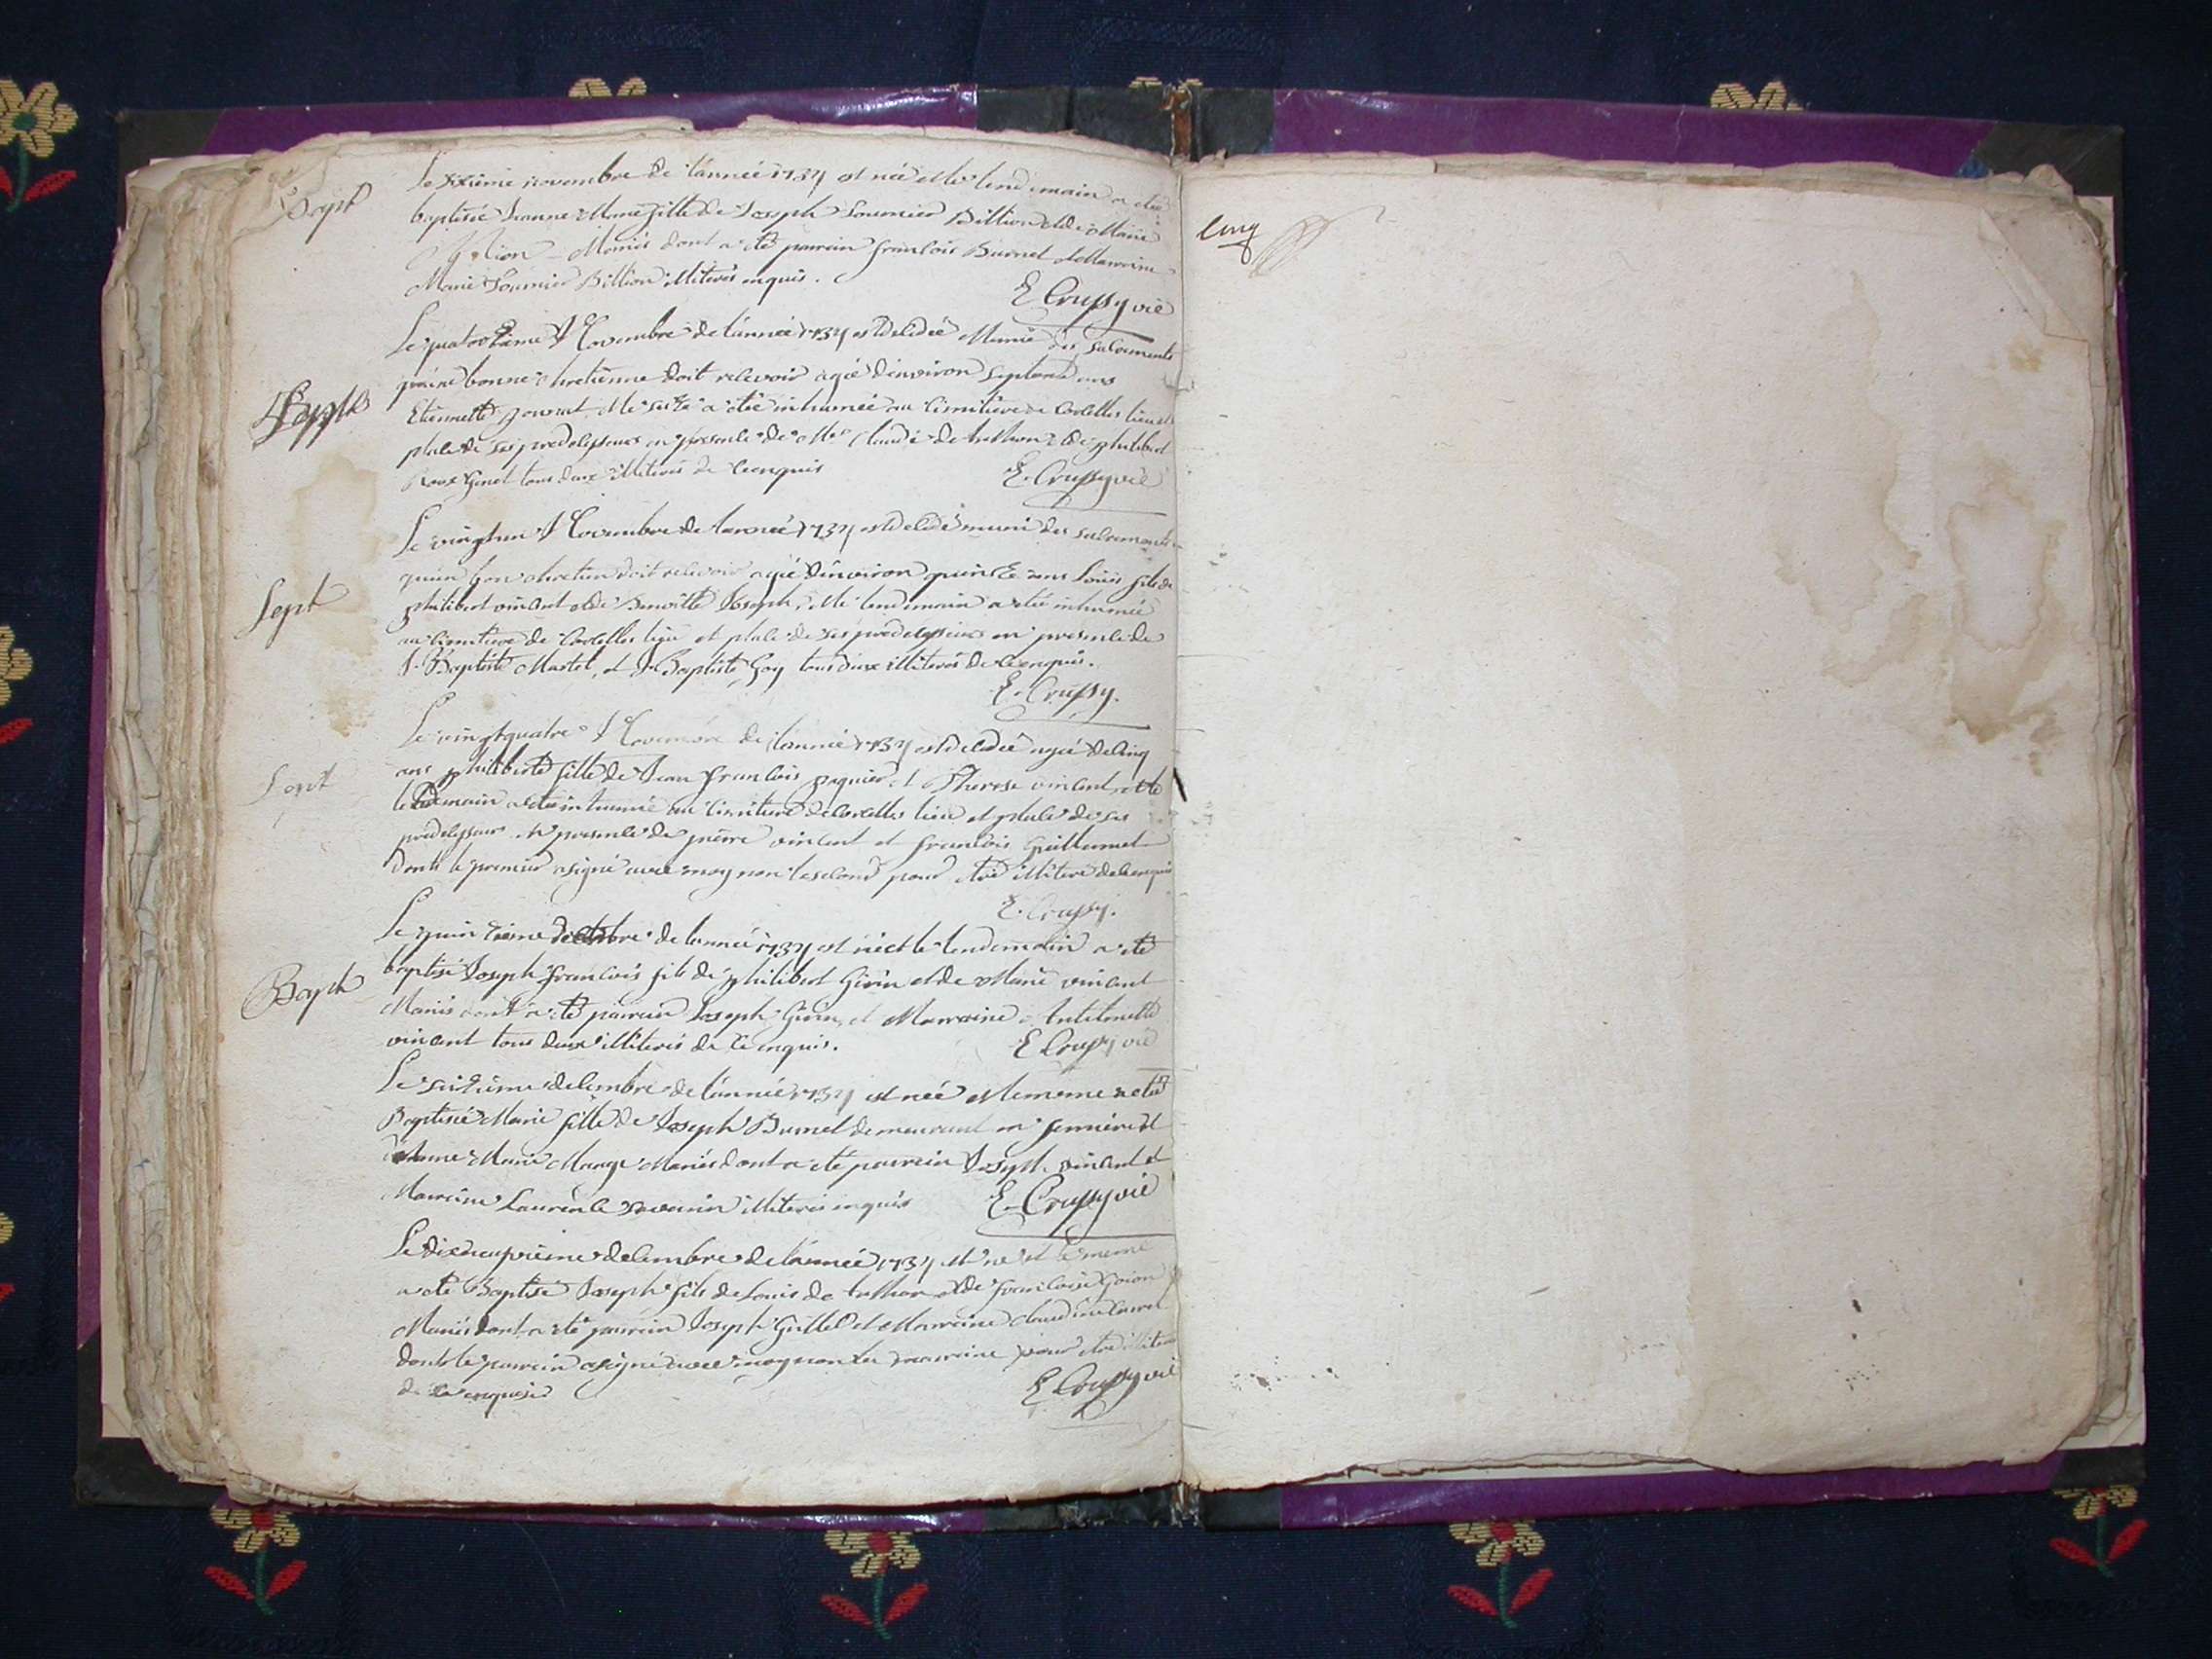 Bapt
Le sixième novembre de l'année 1734 est née et le lendemain a été
baptisée Jeanne Marie fille de Joseph Sournier Billion et de Marie
Mariés dont a été parrain françois Burnet et Marraine
Marie Sournier Billion illiterés enquis.
E Crussy vic
Le quatorzième Novembre de l'année 1734 est decedée Munie des sacraments
bonne chretienne doit recevoir agée d'environ septante ans
Sept
Etiennette et le suite a été inhumée au cimitière de Corcelles lieu et
place de ses predecesseurs en presence de Claude de et de philibert
Roux Genet tous deux illiterés de ce enquis
E. Crussy vic
Le vingtun Novembre de l'année 1734 est decedé muni des sacraments
qu'un bon chretien doit recevoir agé d'environ quinze ans Louis fils de
Sept
philibert vincent et de Benoitte Joseph, et le lendemain a été inhumé
au cimitière de Corcelles lieu et place de ses predecesseurs en presence de
J. Baptiste Martel, et J. Baptiste Goy tous deux illiterés de ce enquis.
E. Crussy.
Le vingtquatre Novembre de l'année 1734 est decedée agée de cinq
Sept
ans philiberte fille de Jean françois paquier et Therese vincent, et le
lendemain a été inhumée au cimitière de Corcelles lieu et place de ses
predecesseurs en presence de pierre vincent et françois Guillermet
dont le premier a signé avec moy non le second pour être illiteré de ce enquis
E. Crussy.
Le quinzième decembre de l'année 1734 est né et le lendemain a été
Bapt
baptisé Joseph françois fils de philibert Girin et de Marie vincent
Mariés dont a été parrain Joseph Girin, et Marraine Antoinette
vincent tous deux illiterés de ce enquis.
E Crussy vic
Le seizième decembre de l'année 1734 est née et le meme a été
Baptisée Marie fille de Joseph Burnet demeurant en et
Jeanne Marie Mange Mariés dont a été parrain Joseph vincent et
Marraine Laurence illiterés enquis
E. Crussy vic
Le dixneuvième decembre de l'année 1734 est né et le meme
a été Baptisé Joseph fils de Louis de et de françoise Goion
Mariés dont a été parrain Joseph Guillet et Marraine claudine
dont le parrain a signé avec moy non la marraine pour être illiteré
de ce enquise
E Crussy vic
cinq